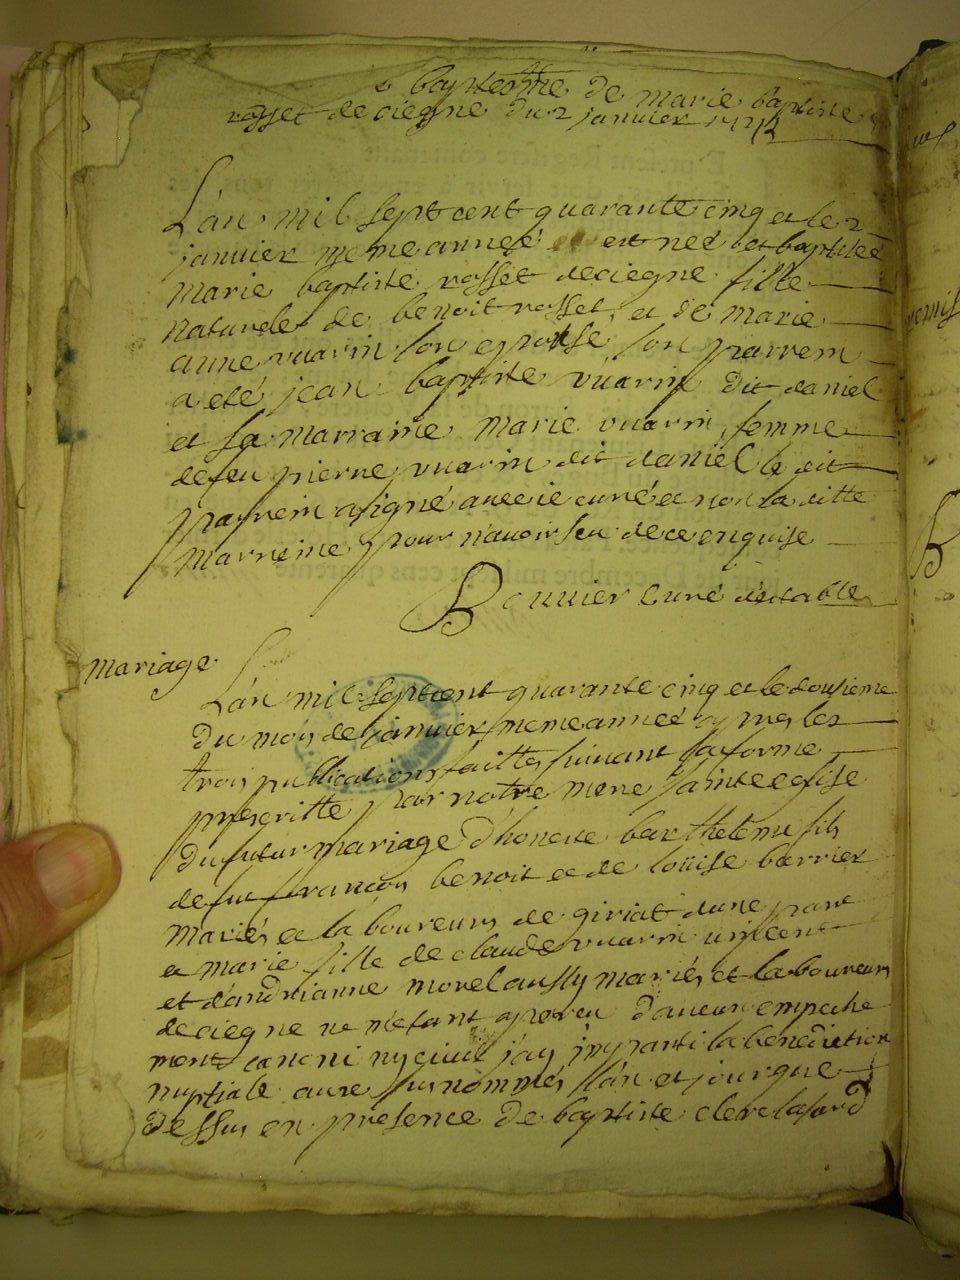 baptesme de marie baptiste
rosset de ciegne du 2 janvier 1745
L'an mil sept cent quarante cinq et le 2
janvier meme anneé est neé et baptiseé
marie baptiste rosset de ciegne fille
naturele de benoit rosset et de marie
anne vuarin son epouse, son parrein
a eté jean baptiste vuarin dit daniel
et sa marraine marie vuarin femme
de feu pierre vuarin dit daniel le dit
parrein a signé avec ie curé et non la ditte
marreine pour n'avoir seu de ce enquise
Bouvier curé
mariage
L'an mil sept cent quarante cinq et le dousieme
du mois de janvier meme anneé apres les
trois publications faittes suivant la forme
prescritte par notre mere sainte eglise
du futur mariage d'honeste barthelemi fils
de fut françois benoit et de louise barrier
mariés et laboureurs de giriat d'une part
et marie fille de claude vuarin vincent
et d'andrianne morel aussy mariés et laboureurs
de ciegne ne m'etant aparu d'aucun empeche
ment canoni ny civil j'ay imparti la benediction
nuptiale aux sus nommés l'an et jour que
dessus en presence de baptiste clerc